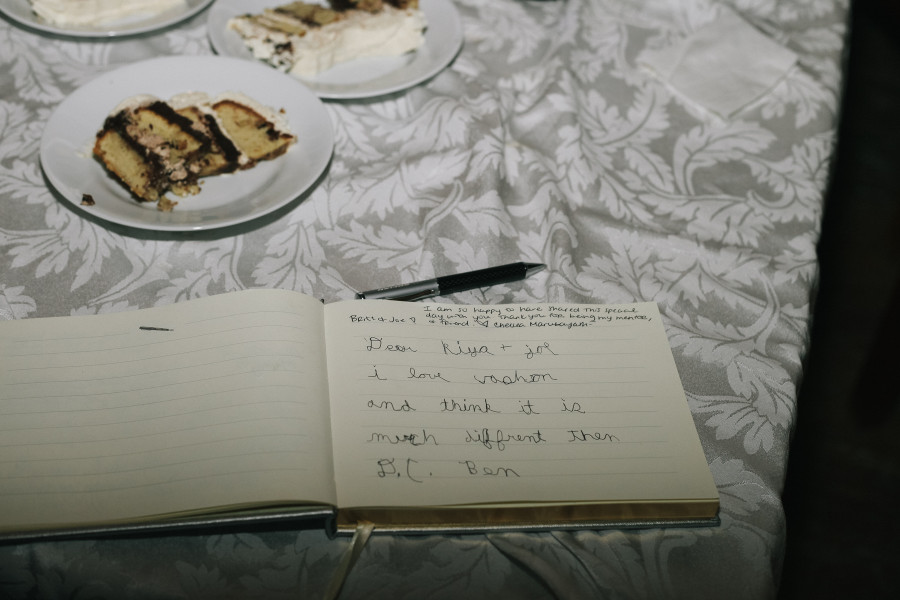 I am so happy to have shared this special
Britt & Joe ♡ day with you. Thank you for being my mentor,
& friend ♡ Chelsea
Dear Kiya + joe
i love vashon
and think it is
much diffrent then
D.C. Ben